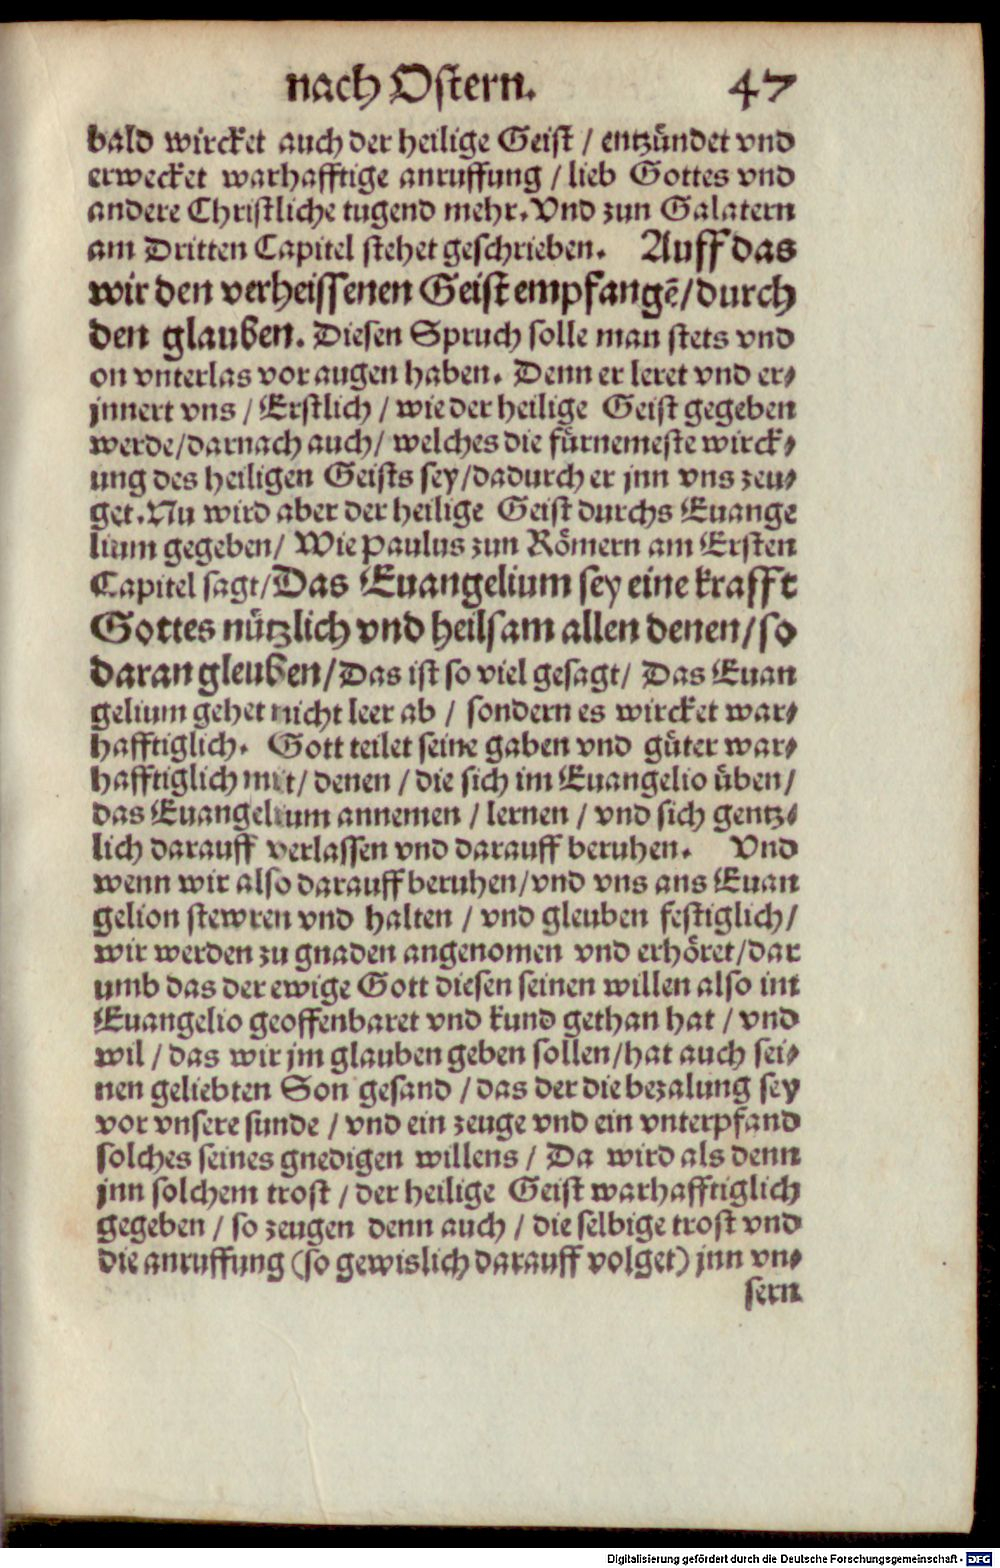 nach Ostern. 47
bald wircket auch der heilige Geist / entzündet vnd
erwecket warhafftige anruffung / lieb Gottes vnd
andere Christliche tugend mehr. Vnd zun Galatern
am Dritten Capitel stehet geschrieben. Auff das
wir den verheissenen Geist empfangē/durch
den glauben. Diesen Spruch solle man stets vnd
on vnterlas vor augen haben. Denn er leret vnd er⸗
jnnert vns / Erstlich / wie der heilige Geist gegeben
werde/darnach auch/ welches die fürnemeste wirck⸗
ung des heiligen Geists sey/dadurch er jnn vns zeu⸗
get. Nu wird aber der heilige Geist durchs Euange
lium gegeben/ Wie Paulus zun Römern am Ersten
Capitel sagt/Das Euangelium sey eine krafft
Gottes nützlich vnd heilsam allen denen/so
daran gleuben/Das ist so viel gesagt/ Das Euan
gelium gehet nicht leer ab / sondern es wircket war⸗
hafftiglich. Gott teilet seine gaben vnd güter war⸗
hafftiglich mit/ denen / die sich im Euangelio üben/
das Euangelium annemen / lernen / vnd sich gentz⸗
lich darauff verlassen vnd darauff beruhen. Vnd
wenn wir also darauff beruhen/vnd vns ans Euan
gelion stewren vnd halten / vnd gleuben festiglich/
wir werden zu gnaden angenomen vnd erhöret/dar
umb das der ewige Gott diesen seinen willen also im
Euangelio geoffenbaret vnd kund gethan hat / vnd
wil / das wir jm glauben geben sollen/hat auch sei⸗
nen geliebten Son gesand / das der die bezalung sey
vor vnsere sunde / vnd ein zeuge vnd ein vnterpfand
solches seines gnedigen willens / Da wird als denn
jnn solchem trost / der heilige Geist warhafftiglich
gegeben / so zeugen denn auch / die selbige trost vnd
die anruffung (so gewislich darauff volget) jnn vn⸗
sern
Digitalisierung gefördert durch die Deutsche Forschungsgemeinschaft - DFG